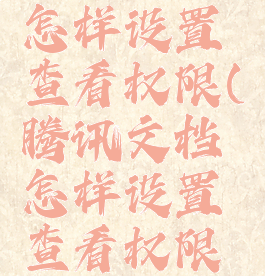 怎样设置
查看权限(
腾讯文档
怎样设置
查看权限